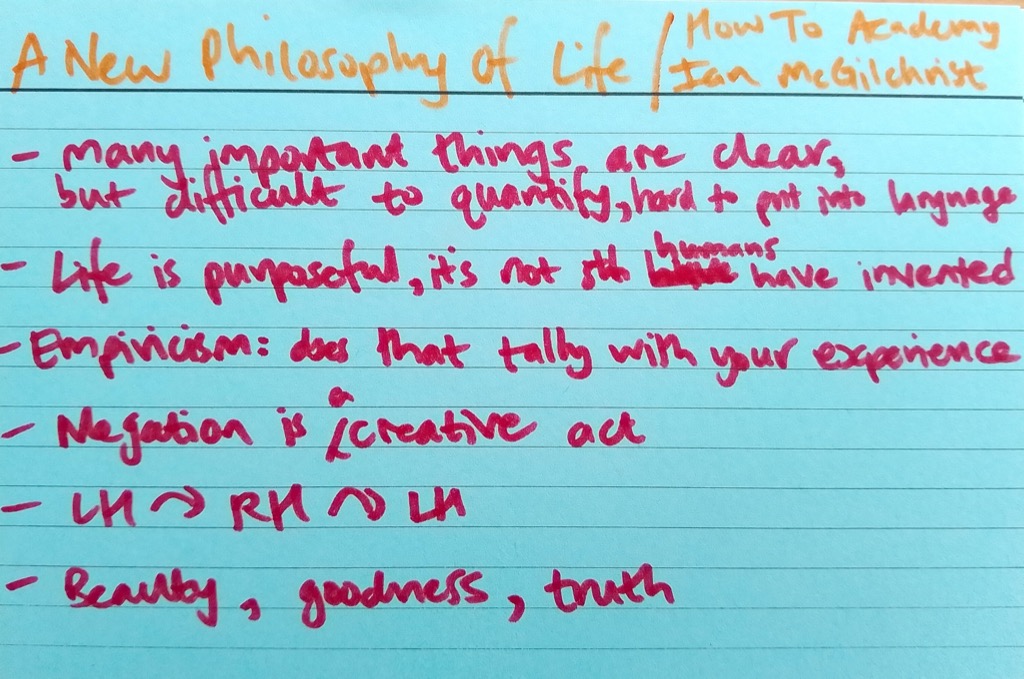 A New Philosophy of Life / How To Academy
Ian McGilchrist
- many important things are clear,
but difficult to quantify, hard to put into language
- Life is purposeful, it's not sth humans have invented
- Empiricism: does that tally with your experience
- Negation is a creative act
- LH → RH → LH
- Beauty, goodness, truth